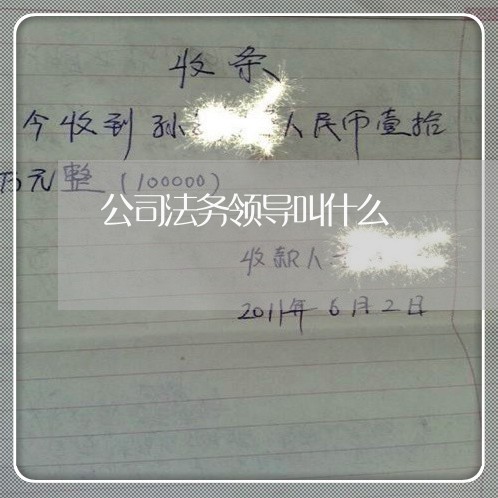 收条
今收到孙 人民币壹拾
万元整（100000）
公司法务领导叫什么
收款人
2011年6月2日